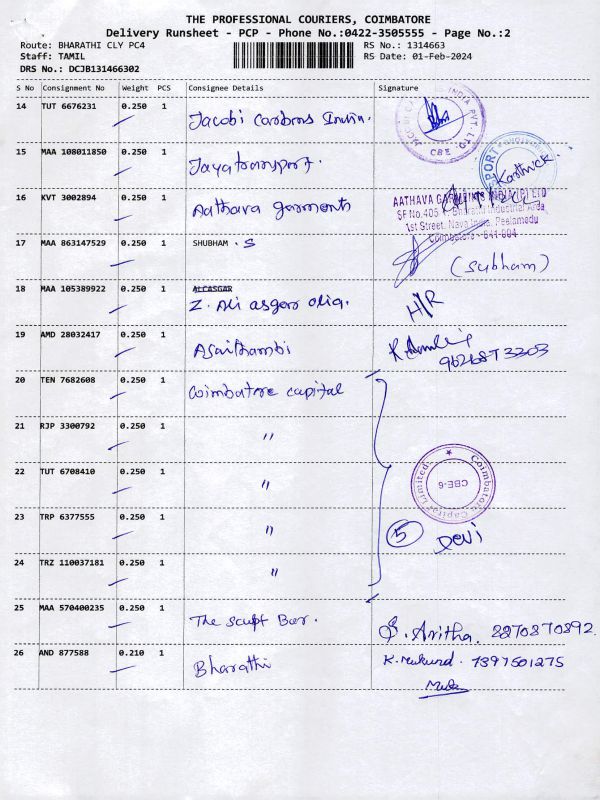 THE PROFESSIONAL COURIERS, COIMBATORE
Delivery Runsheet - PCP - Phone No.:0422-3505555 - Page No.:2
Route: BHARATHI CLY PC4 RS No.: 1314663
Staff: TAMIL RS Date: 01-Feb-2024
DRS No.: DCJB131466302
S No Consignment No Weight PCS Consignee Details Signature
14 TUT 6676231 0.250 1 Jacobi Carbons India.
INDIA PVT. LTD. CBE
15 MAA 108011850 0.250 1 Jayatransport. Karthick
16 KVT 3002894 0.250 1 Aathava garments
AATHAVA GARMENTS INDIA (P) LTD
SF No.405 Bharathi Industrial Area
1st Street, Nava India, Peelamedu
Coimbatore - 641 004
17 MAA 863147529 0.250 1 SHUBHAM . S (Subham)
18 MAA 105389922 0.250 1 ALCASGAR
Z. Ali asgar H/R
19 AMD 28032417 0.250 1 Asaithambi
20 TEN 7682608 0.250 1 Coimbatore capital
21 RJP 3300792 0.250 1 "
22 TUT 6708410 0.250 1 "
Coimbatore Capital Limited CBE-6
23 TRP 6377555 0.250 1 " 5 Devi
24 TRZ 110037181 0.250 1 "
25 MAA 570400235 0.250 1 The sculpt Bar. S. Anitha. 2870870892
26 AND 877588 0.210 1 Bharathi K. Mukund. 7397501275